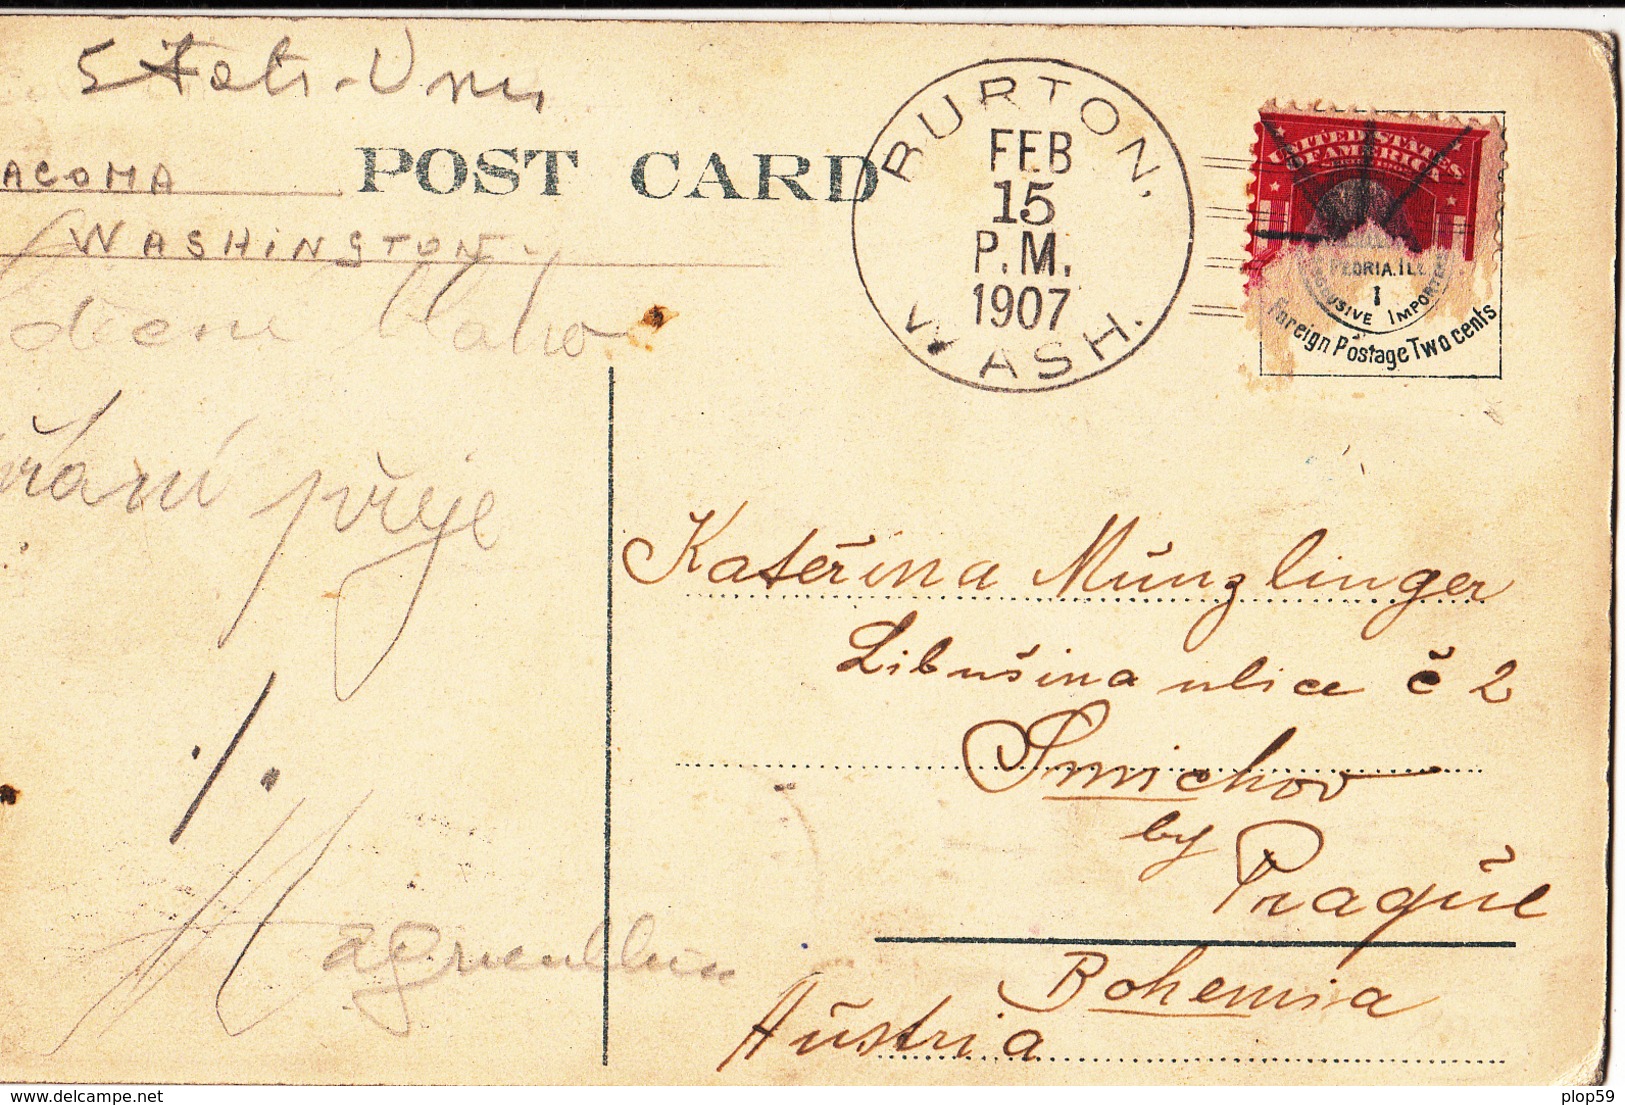 Etats-Unis
POST CARD
ACOMA
WASHiNGTON
BURTON,
FEB
15
P.M.
1907
WASH.
UNITED STATES
OF AMERICA
PEORIA, ILL
1
IMPORTE
Foreign Postage Two cents
přeje
Kateřina Münzlinger
Libušina ulice č 2
Smichov
by
Prague
Bohemia
Austria
delcampe.net
plop59